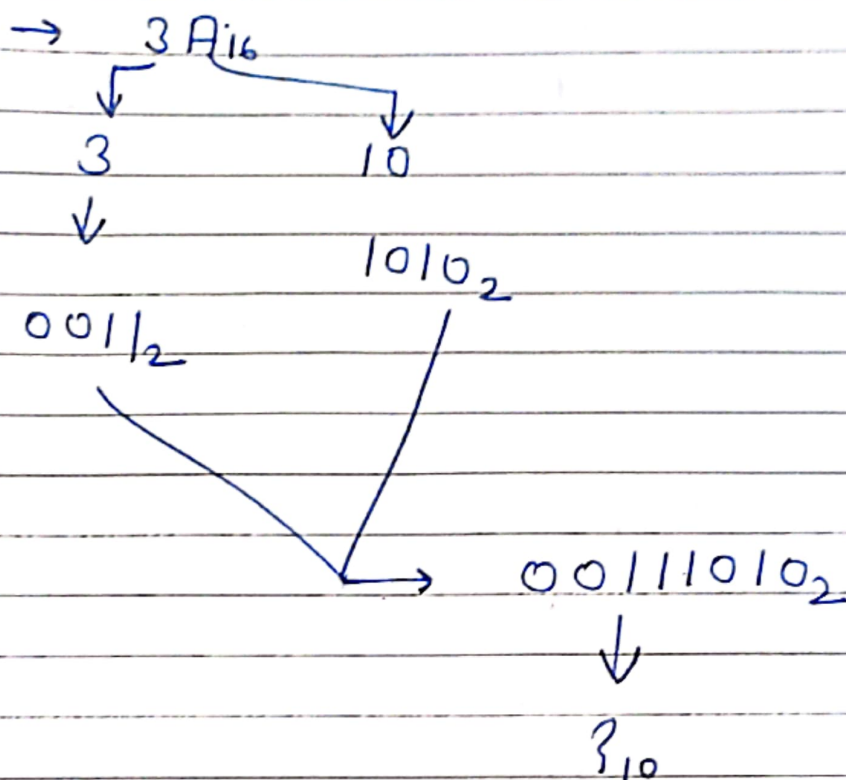 → 3A₁₆
3 10
1010₂
0011₂
00111010₂
?₁₀